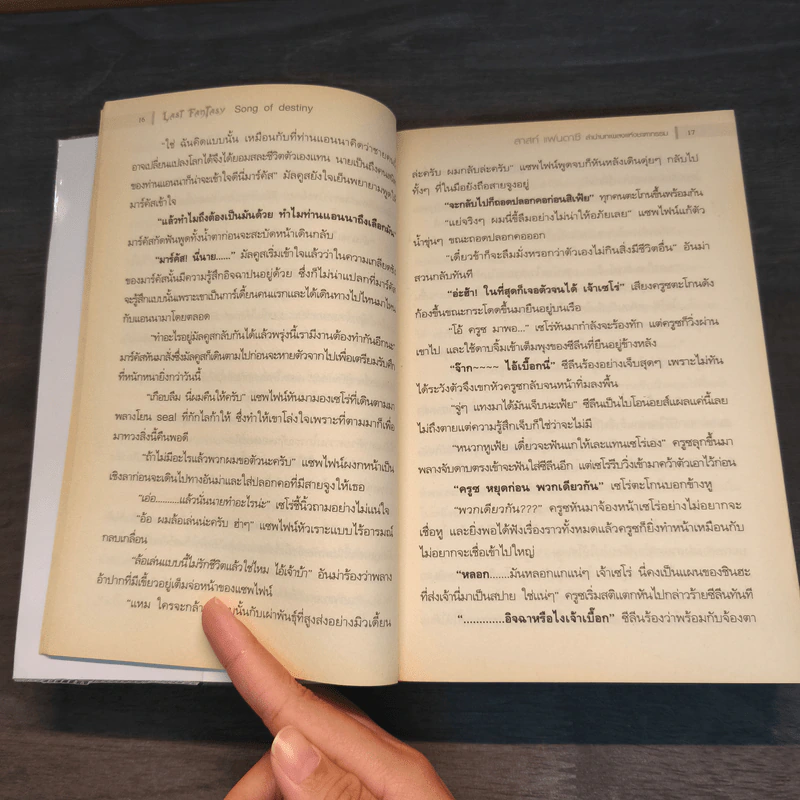 16 | LAST FANTASY Song of destiny
"ใช่ ฉันคิดแบบนั้น เหมือนกับที่ท่านแอนนาคิดว่าชายคนนี้
อาจเปลี่ยนแปลงโลกได้จึงได้ยอมสละชีวิตตัวเองแทน นายเป็นถึงคนสนิท
ของท่านแอนนาก็น่าจะเข้าใจดีนี่มาร์คัส" มัลคูสยังใจเย็นพยายามพูดให้
มาร์คัสเข้าใจ
"แล้วทำไมถึงต้องเป็นมันด้วย ทำไมท่านแอนนาถึงเลือกมัน"
มาร์คัสกัดฟันพูดทั้งน้ำตาก่อนจะสะบัดหน้าเดินกลับ
"มาร์คัส! นี่นาย......" มัลคูสเริ่มเข้าใจแล้วว่าในความเกลียดชัง
ของมาร์คัสนั้นมีความรู้สึกอิจฉาปนอยู่ด้วย ซึ่งก็ไม่น่าแปลกที่มาร์คัส
จะรู้สึกแบบนั้นเพราะเขาเป็นการ์เดี้ยนคนแรกและได้เดินทางไปไหนมาไหน
กับแอนนามาโดยตลอด
"ทำอะไรอยู่มัลคูสกลับกันได้แล้วพรุ่งนี้เรามีงานต้องทำกันอีกนะ"
มาร์คัสหันมาสั่งซึ่งมัลคูสก็เดินตามไปก่อนจะหายตัวจากไปเพื่อเตรียมรับศึก
ที่หนักหนายิ่งกว่าวันนี้
"เกือบลืม นี่ผมคืนให้ครับ" แซพไฟน์หันมามองเซโร่ที่เดินตามมา
พลางโยน seal ที่กักไลก้าให้ ซึ่งทำให้เขาโล่งใจเพราะที่ตามมาก็เพื่อ
มาทวงสิ่งนี้คืนพอดี
"ถ้าไม่มีอะไรแล้วพวกผมขอตัวนะครับ" แซพไฟน์ผงกหน้าเป็น
เชิงลาก่อนจะเดินไปทางอันม่าและใส่ปลอกคอที่มีสายจูงให้เธอ
"เอ่อ..........แล้วนั่นนายทำอะไรน่ะ" เซโร่ชี้นิ้วถามอย่างไม่แน่ใจ
"อ้อ ผมล้อเล่นน่ะครับ ฮ่าๆ" แซพไฟน์หัวเราะแบบไร้อารมณ์
กลบเกลื่อน
"ล้อเล่นแบบนี้ไม่รักชีวิตแล้วใช่ไหม ไอ้เจ้าบ้า" อันม่าร้องว่าพลาง
อ้าปากที่มีเขี้ยวอยู่เต็มจ่อหน้าของแซพไฟน์
"แหม ใครจะกล้า นั้นกับเผ่าพันธุ์ที่สูงส่งอย่างมิวเตี้ยน
ลาสท์ แฟนตาซี ตำนานบทเพลงแห่งชะตากรรม | 17
ล่ะครับ ผมกลับล่ะครับ" แซพไฟน์พูดจบก็หันหลังเดินดุ่ยๆ กลับไป
ทั้งๆ ที่ในมือยังถือสายจูงอยู่
"จะกลับไปก็ถอดปลอกคอก่อนสิเฟ้ย" ทุกคนตะโกนขึ้นพร้อมกัน
"แย่จริงๆ ผมนี่ขี้ลืมอย่างไม่น่าให้อภัยเลย" แซพไฟน์แก้ตัว
น้ำขุ่นๆ ขณะถอดปลอกคอออก
"เดี๋ยวข้าก็จะลืมมั่งหรอกว่าตัวเองไม่กินสิ่งมีชีวิตอื่น" อันม่า
สวนกลับทันที
"อ่ะฮ้า! ในที่สุดก็เจอตัวจนได้ เจ้าเซโร่" เสียงครูซตะโกนดัง
ก้องขึ้นขณะกระโดดขึ้นมายืนอยู่บนเรือ
"โอ้ ครูซ มาพอ..." เซโร่หันมากำลังจะร้องทัก แต่ครูซก็วิ่งผ่าน
เขาไป และใช้ดาบจิ้มเข้าเต็มพุงของซีลีนที่ยืนอยู่ข้างหลัง
"จ๊าก~~~~ ไอ้เบื๊อกนี่" ซีลีนร้องอย่างเจ็บสุดๆ เพราะไม่ทัน
ได้ระวังตัวจึงเขกหัวครูซกลับจนหน้าทิ่มลงพื้น
"จู่ๆ แทงมาได้มันเจ็บนะเฟ้ย" ซีลีนเป็นไปโอนอยส์แผลแค่นี้เลย
ไม่ถึงตายแต่ความรู้สึกเจ็บก็ใช่ว่าจะไม่มี
"หนวกหูเฟ้ย เดี๋ยวจะฟันแกให้เละแทนเซโร่เอง" ครูซลุกขึ้นมา
พลางจับดาบตรงเข้าจะฟันใส่ซีลีนอีก แต่เซโร่รีบวิ่งเข้ามาคว้าตัวเอาไว้ก่อน
"ครูซ หยุดก่อน พวกเดียวกัน" เซโร่ตะโกนบอกข้างหู
"พวกเดียวกัน???" ครูซหันมาจ้องหน้าเซโร่อย่างไม่อยากจะ
เชื่อหู และยิ่งพอได้ฟังเรื่องราวทั้งหมดแล้วครูซก็ยิ่งทำหน้าเหมือนกับ
ไม่อยากจะเชื่อเข้าไปใหญ่
"หลอก......มันหลอกแกแน่ๆ เจ้าเซโร่ นี่คงเป็นแผนของชินฮะ
ที่ส่งเจ้านี่มาเป็นสปาย ใช่แน่ๆ" ครูซเริ่มสติแตกหันไปกล่าวร้ายซีลีนทันที
".............อิจฉาหรือไงเจ้าเบื๊อก" ซีลีนร้องว่าพร้อมกับจ้องตา